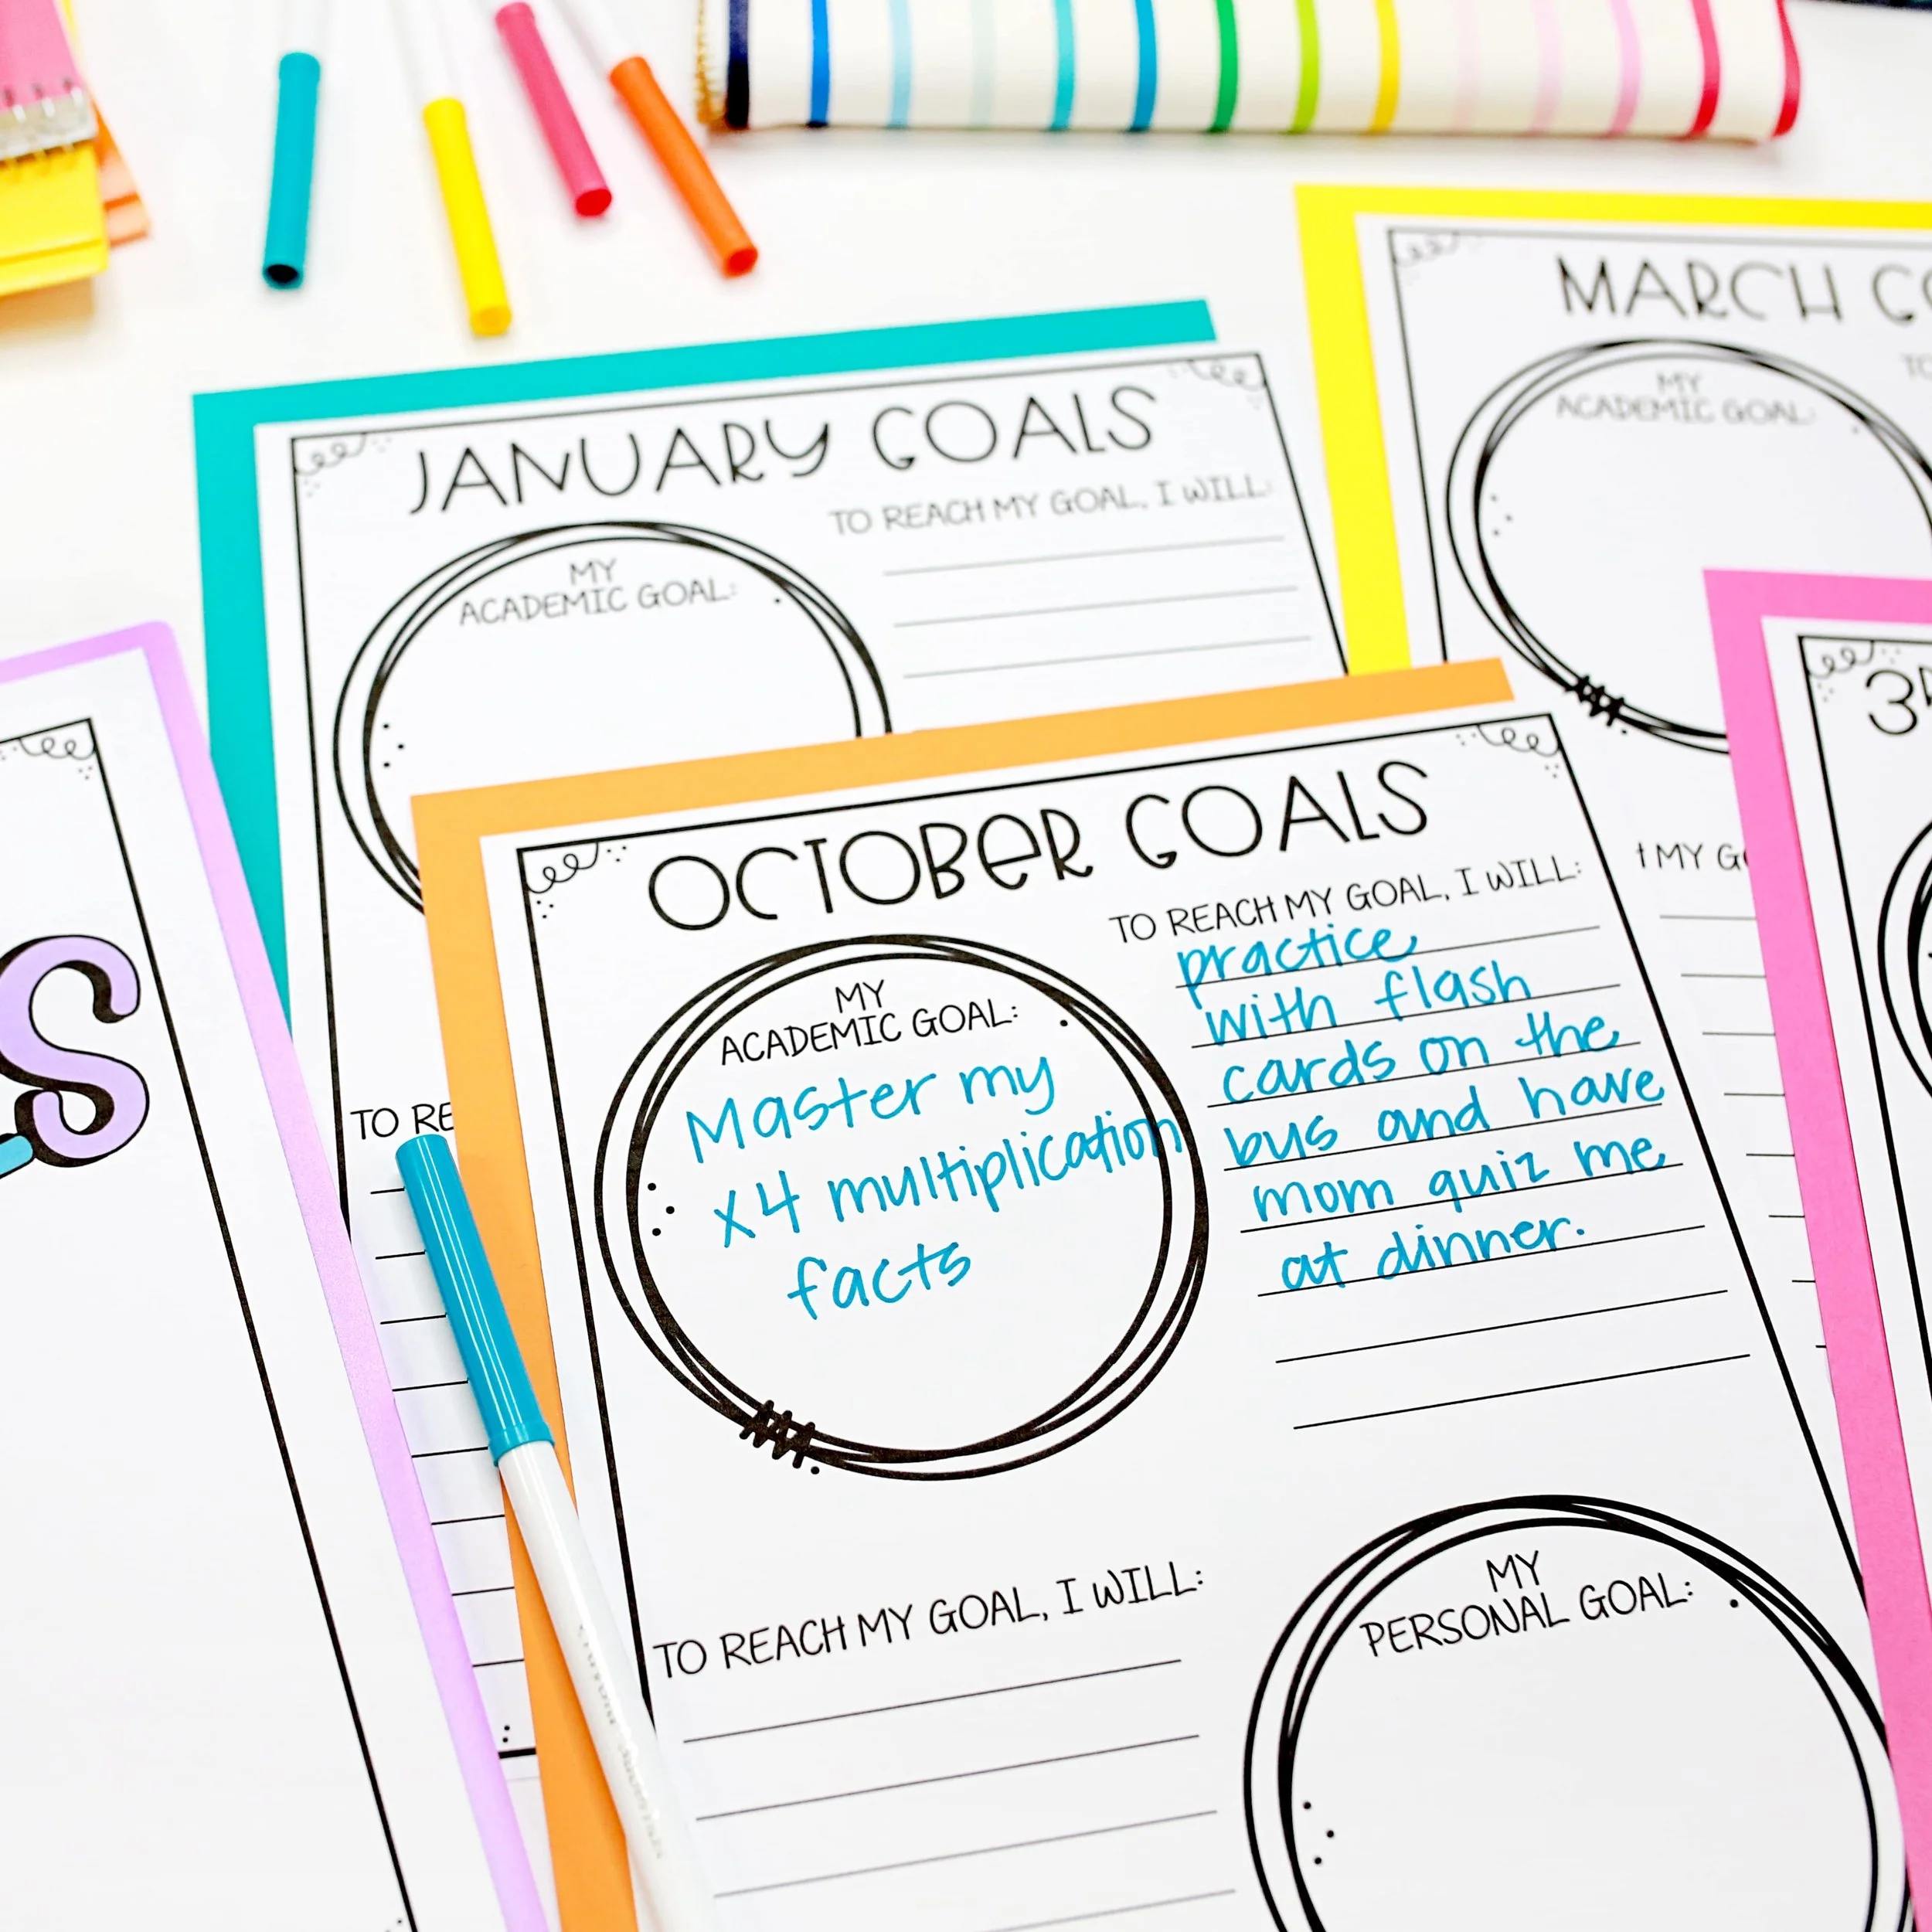 JANUARY GOALS
MY
ACADEMIC GOAL:
TO REACH MY GOAL, I WILL:
TO RE
MARCH GO
MY
ACADEMIC GOAL:
TO
MY GO
3R
S
OCTOBER GOALS
MY
ACADEMIC GOAL:
Master my
x4 multiplication
facts
TO REACH MY GOAL, I WILL:
practice
with flash
cards on the
bus and have
mom quiz me
at dinner.
TO REACH MY GOAL, I WILL:
MY
PERSONAL GOAL: